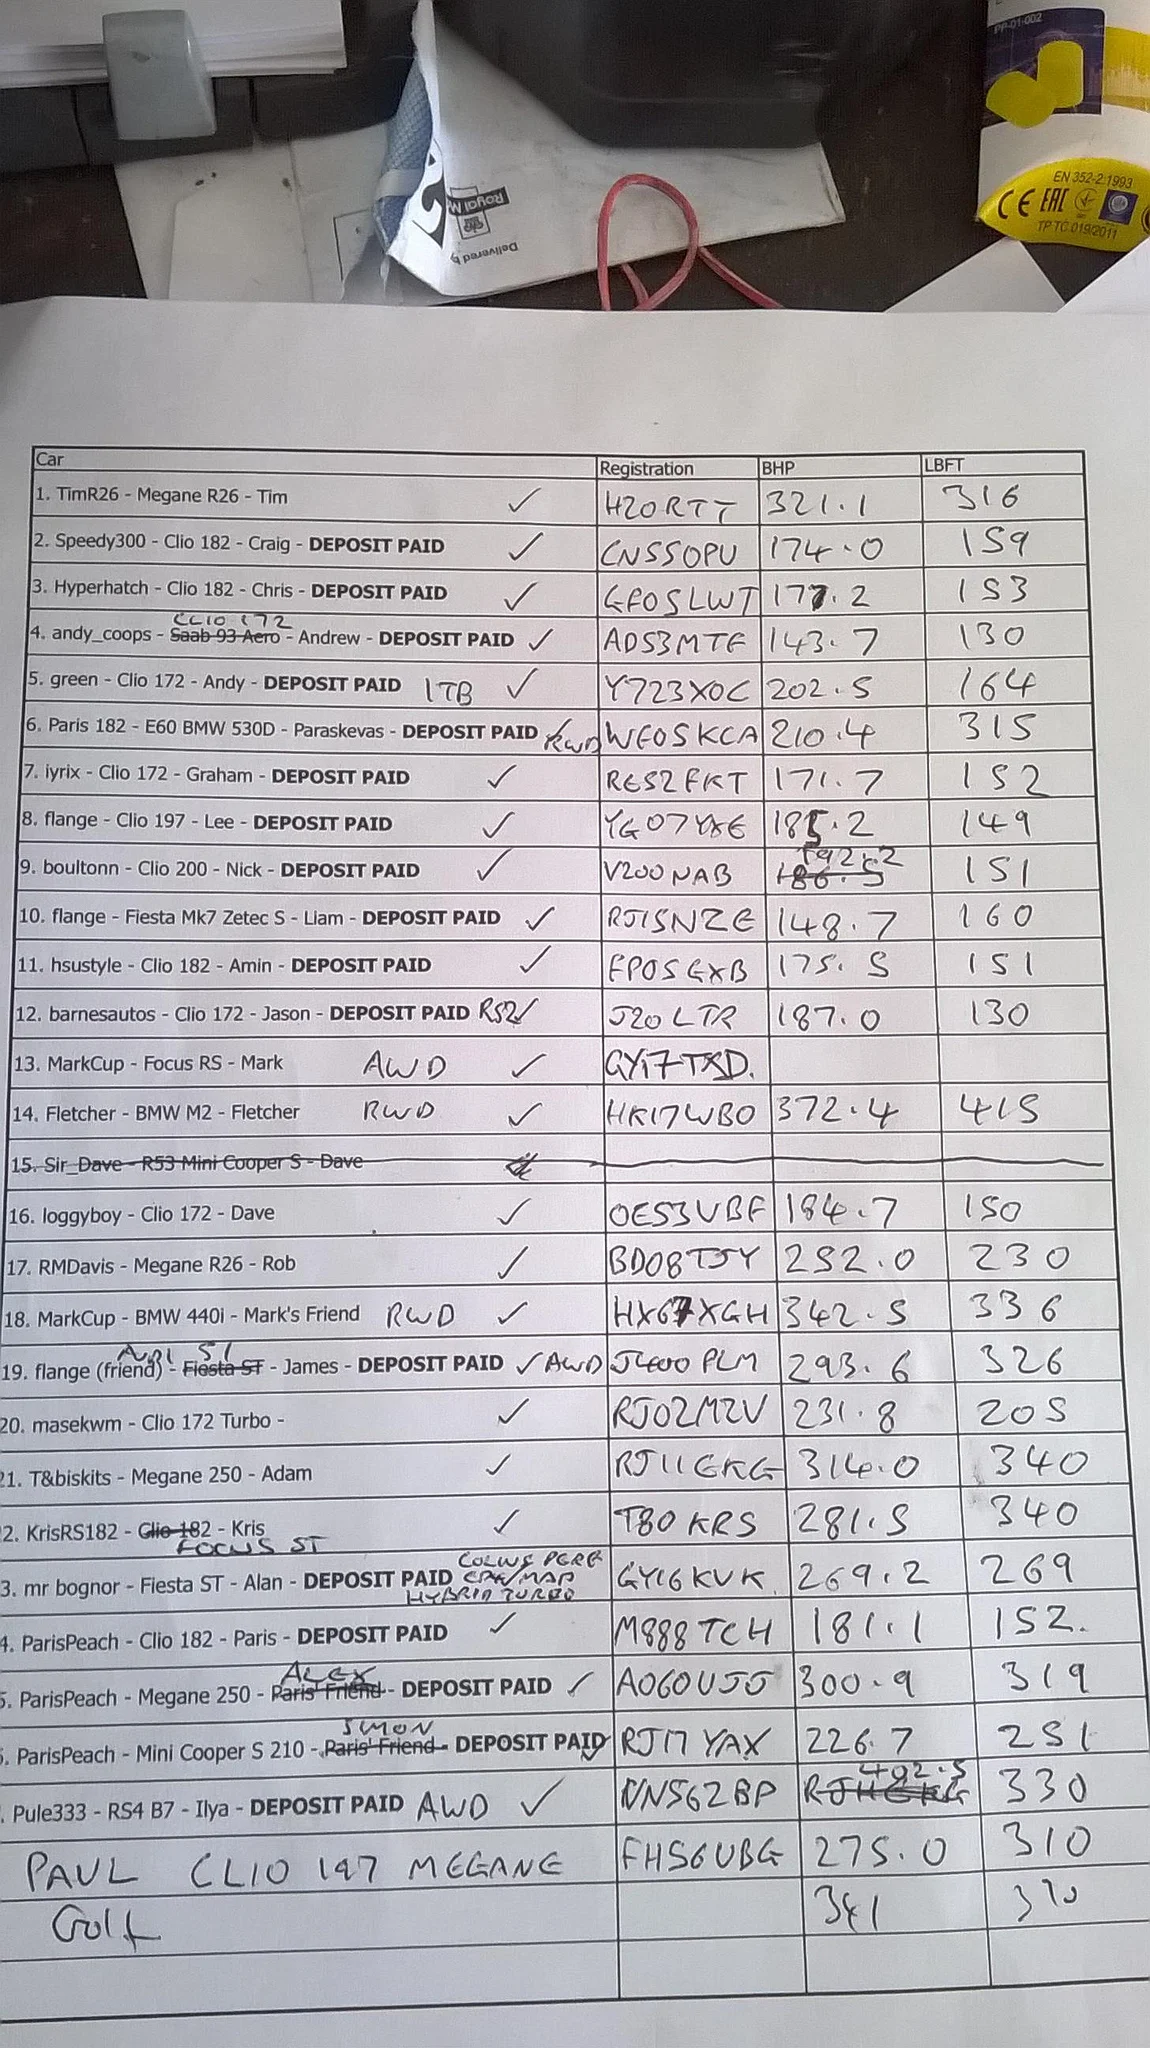 PP-01-002
EN 352-2:1993
CE EAC
TP TC 019/2011
Royal M
Delivered b
Car Registration BHP LBFT
1. TimR26 - Megane R26 - Tim ✓ H20RTT 321.1 316
2. Speedy300 - Clio 182 - Craig - DEPOSIT PAID ✓ CN55OPU 174.0 159
3. Hyperhatch - Clio 182 - Chris - DEPOSIT PAID ✓ GF05LWT 177.2 153
CLIO 172
4. andy_coops - Saab 93 Aero - Andrew - DEPOSIT PAID ✓ AD53MTF 143.7 130
5. green - Clio 172 - Andy - DEPOSIT PAID ITB ✓ Y723XOC 202.5 164
6. Paris 182 - E60 BMW 530D - Paraskevas - DEPOSIT PAID ✓ RWD WF05KCA 210.4 315
7. iyrix - Clio 172 - Graham - DEPOSIT PAID ✓ RE52FKT 171.7 152
8. flange - Clio 197 - Lee - DEPOSIT PAID ✓ YG07YXE 185.2 149
192.2
9. boultonn - Clio 200 - Nick - DEPOSIT PAID ✓ V200NAB 186.5 151
10. flange - Fiesta Mk7 Zetec S - Liam - DEPOSIT PAID ✓ RJ15NZE 148.7 160
11. hsustyle - Clio 182 - Amin - DEPOSIT PAID ✓ FP05GXB 175.5 151
12. barnesautos - Clio 172 - Jason - DEPOSIT PAID RS2 ✓ J20LTR 187.0 130
13. MarkCup - Focus RS - Mark AWD ✓ GY17TXD.
14. Fletcher - BMW M2 - Fletcher RWD ✓ HK17WBO 372.4 415
15. Sir_Dave - R53 Mini Cooper S - Dave
16. loggyboy - Clio 172 - Dave ✓ OE53VBF 184.7 150
17. RMDavis - Megane R26 - Rob ✓ BD08TJY 252.0 230
18. MarkCup - BMW 440i - Mark's Friend RWD ✓ HX67XGH 342.5 336
AUDI S1
19. flange (friend) - Fiesta ST - James - DEPOSIT PAID ✓ AWD J400PLM 293.6 326
20. masekwm - Clio 172 Turbo - ✓ RJ02MZV 231.8 205
21. T&biskits - Megane 250 - Adam ✓ RJ11GKG 314.0 340
2. KrisRS182 - Clio 182 - Kris ✓ T80KRS 281.5 340
FOCUS ST
COLLINS PERF
3. mr bognor - Fiesta ST - Alan - DEPOSIT PAID GY16KVK 269.2 269
HYBRID TURBO
4. ParisPeach - Clio 182 - Paris - DEPOSIT PAID ✓ M888TCH 181.1 152.
ALEX
5. ParisPeach - Megane 250 - Paris' Friend - DEPOSIT PAID ✓ AO60UJJ 300.9 319
SIMON
. ParisPeach - Mini Cooper S 210 - Paris' Friend - DEPOSIT PAID ✓ RJ17YAX 226.7 251
402.5
. Pule333 - RS4 B7 - Ilya - DEPOSIT PAID AWD ✓ NN56ZBP RJ11GKG 330
PAUL CLIO 197 MEGANE FH56UBG 275.0 310
Golf 341 370